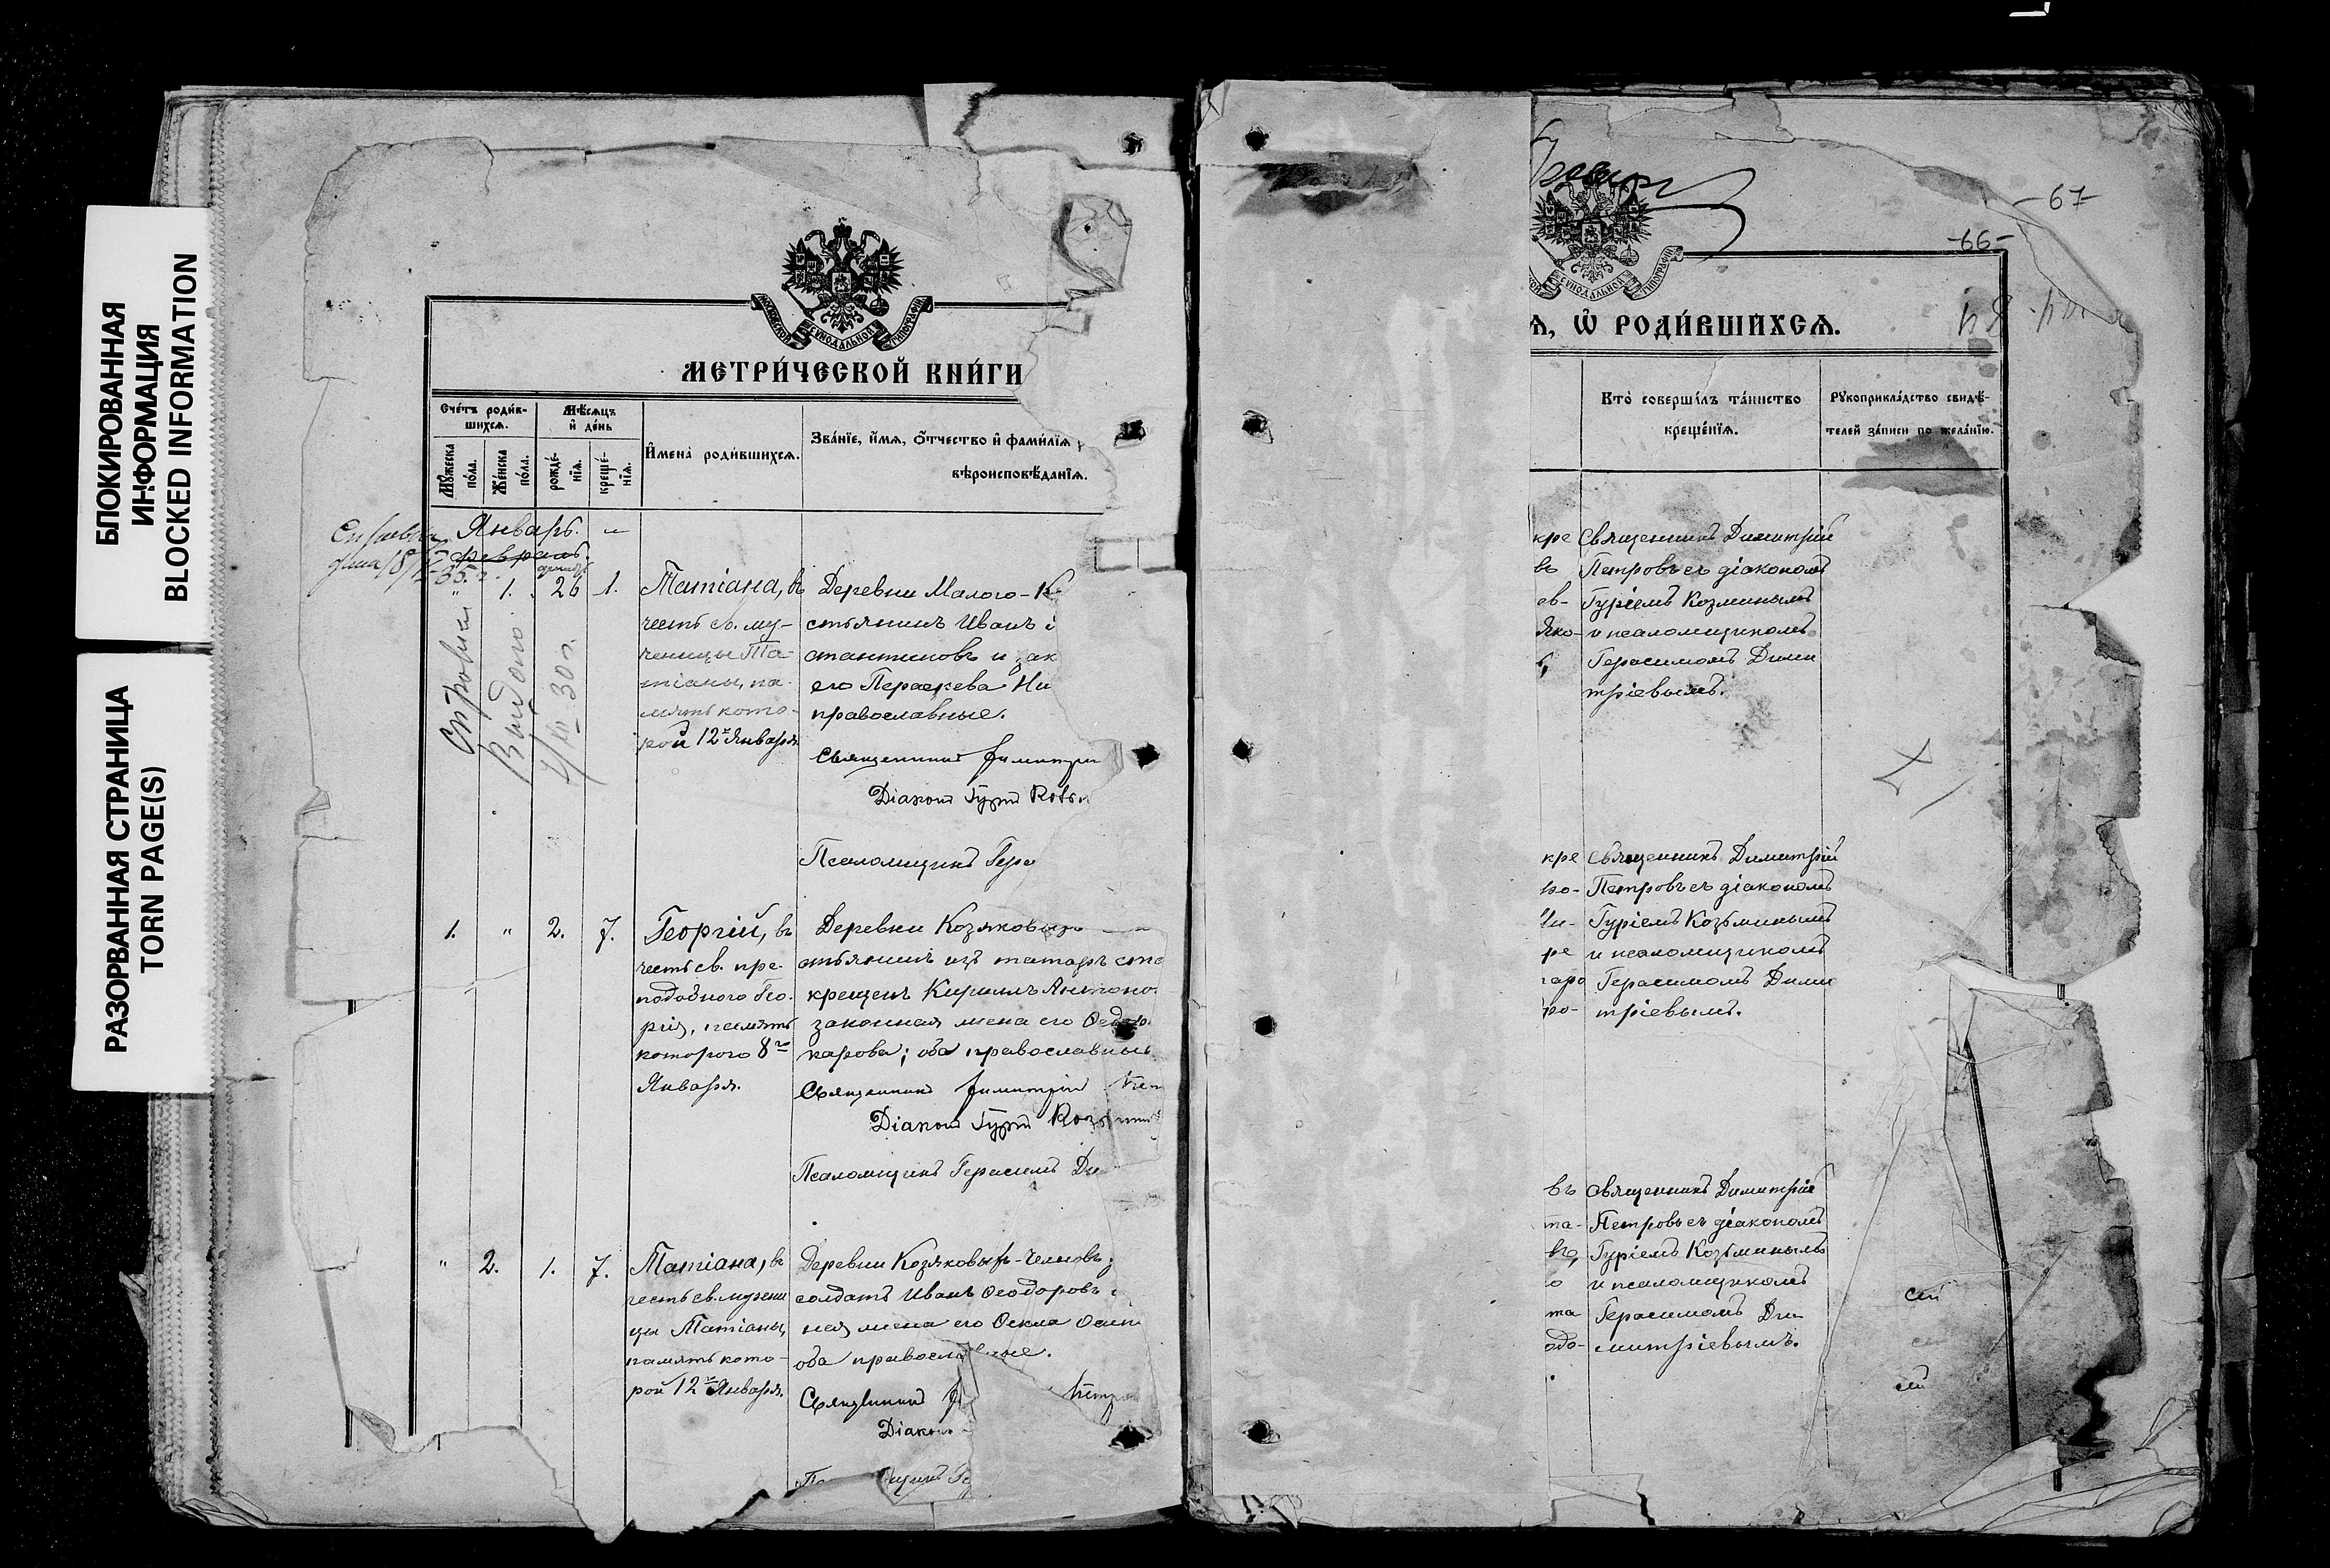 БЛОКИРОВАННАЯ
ИНФОРМАЦИЯ
BLOCKED INFORMATION
РАЗОРВАННАЯ СТРАНИЦА
TORN PAGE(S)
МОСКОВСКОЙ СѴНОДАЛЬНОЙ ТИПОГРАФІИ
МЕТРИ́ЧЕСКОЙ КНИ́ГИ
Сче́тъ роди́в-
шихсѧ.
Мѣ́сѧцъ
и҆ де́нь
Мꙋ́жеска
по́ла.
Же́нска
по́ла.
рожде́-
нїѧ.
креще́-
нїѧ.
И҆мена̀ роди́вшихсѧ.
Зва́нїе, и҆́мѧ, ѻ҆́тчество и҆ фами́лїѧ
вѣроисповѣ́данїѧ.
Январь.
февраль.
„ 1. 26 1.
Татіана, въ
честь св. му-
ченицы Та-
тіаны, па-
мять кото-
рой 12го Января
Деревни Малого-К
стьянинъ Иванъ
стантиновъ и зак
его Параскева Ни
православные.
Священникъ Димитрі
Діаконъ Гурій
Псаломщикъ Гера
Справка
Выдана
1. „ 2. 7.
Георгій, въ
честь св. пре-
подобнаго Гео-
ргія, память
котораго 8го
Января.
Деревни Козяковыхъ
стьянинъ изъ татаръ ста
крещенъ Кириллъ Антоно
законная жена его Ѳедо
карова; оба православные
Священникъ Димитрій Пет
Діаконъ Гурій Козьмин
Псаломщикъ Герасимъ Ди
„ 2. 1. 7.
Татіана, въ
честь св. мучени
цы Татіаны,
память кото-
рой 12го Января.
Деревни Козяковыхъ-Челновъ
солдатъ Иванъ Ѳеодоровъ
ная жена его Ѳекла Осип
оба православные.
Священникъ Петр
Діакон
щикъ Ге
-67-
-66-
СѴНОДАЛЬНОЙ ТИПОГРАФІИ
Ѧ, Ѡ҆ РОДИ́ВШИХСѦ.
Кто̀ соверши́лъ та́инство
креще́нїѧ.
Рꙋкоприкла́дство свидѣ́-
телей за́писи по жела́нїю.
кре
въ
ов-
Яко-
Священникъ Димитрій
Петровъ съ діакономъ
Гуріемъ Козминымъ
и псаломщикомъ
Герасимомъ Дими
тріевымъ.
кре
ро-
Ни-
ре
Священникъ Димитрій
Петровъ съ діакономъ
Гуріемъ Козьминымъ
и псаломщикомъ
Герасимомъ Дими
тріевымъ.
въ
та-
о
та
одо-
Священникъ Димитрій
Петровъ съ діакономъ
Гуріемъ Козьминымъ
и псаломщикомъ
Герасимомъ Ди
митріевымъ.